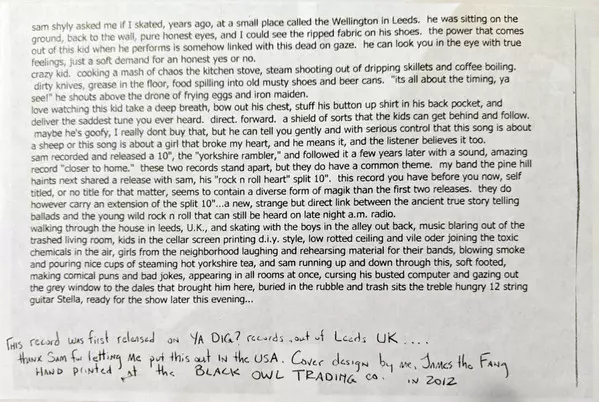 sam shyly asked me if I skated, years ago, at a small place called the Wellington in Leeds. he was sitting on the
ground, back to the wall, pure honest eyes, and I could see the ripped fabric on his shoes. the power that comes
out of this kid when he performs is somehow linked with this dead on gaze. he can look you in the eye with true
feelings, just a soft demand for an honest yes or no.
crazy kid. cooking a mash of chaos the kitchen stove, steam shooting out of dripping skillets and coffee boiling.
dirty knives, grease in the floor, food spilling into old musty shoes and beer cans. "its all about the timing, ya
see!" he shouts above the drone of frying eggs and iron maiden.
love watching this kid take a deep breath, bow out his chest, stuff his button up shirt in his back pocket, and
deliver the saddest tune you ever heard. direct. forward. a shield of sorts that the kids can get behind and follow.
maybe he's goofy, I really dont buy that, but he can tell you gently and with serious control that this song is about
a sheep or this song is about a girl that broke my heart, and he means it, and the listener believes it too.
sam recorded and released a 10", the "yorkshire rambler," and followed it a few years later with a sound, amazing
record "closer to home." these two records stand apart, but they do have a common theme. my band the pine hill
haints next shared a release with sam, his "rock n roll heart" split 10". this record you have before you now, self
titled, or no title for that matter, seems to contain a diverse form of magik than the first two releases. they do
however carry an extension of the split 10"...a new, strange but direct link between the ancient true story telling
ballads and the young wild rock n roll that can still be heard on late night a.m. radio.
walking through the house in leeds, U.K., and skating with the boys in the alley out back, music blaring out of the
trashed living room, kids in the cellar screen printing d.i.y. style, low rotted ceiling and vile odor joining the toxic
chemicals in the air, girls from the neighborhood laughing and rehearsing material for their bands, blowing smoke
and pouring nice cups of steaming hot yorkshire tea, and sam running up and down through this, soft footed,
making comical puns and bad jokes, appearing in all rooms at once, cursing his busted computer and gazing out
the grey window to the dales that brought him here, buried in the rubble and trash sits the treble hungry 12 string
guitar Stella, ready for the show later this evening...
THIS record was first released on YA DIG? records, out of Leeds UK....
thank Sam for letting me put this out IN the USA. Cover design by me, James the Fang
HAND printed at the BLACK OWL TRADING co. IN 2012